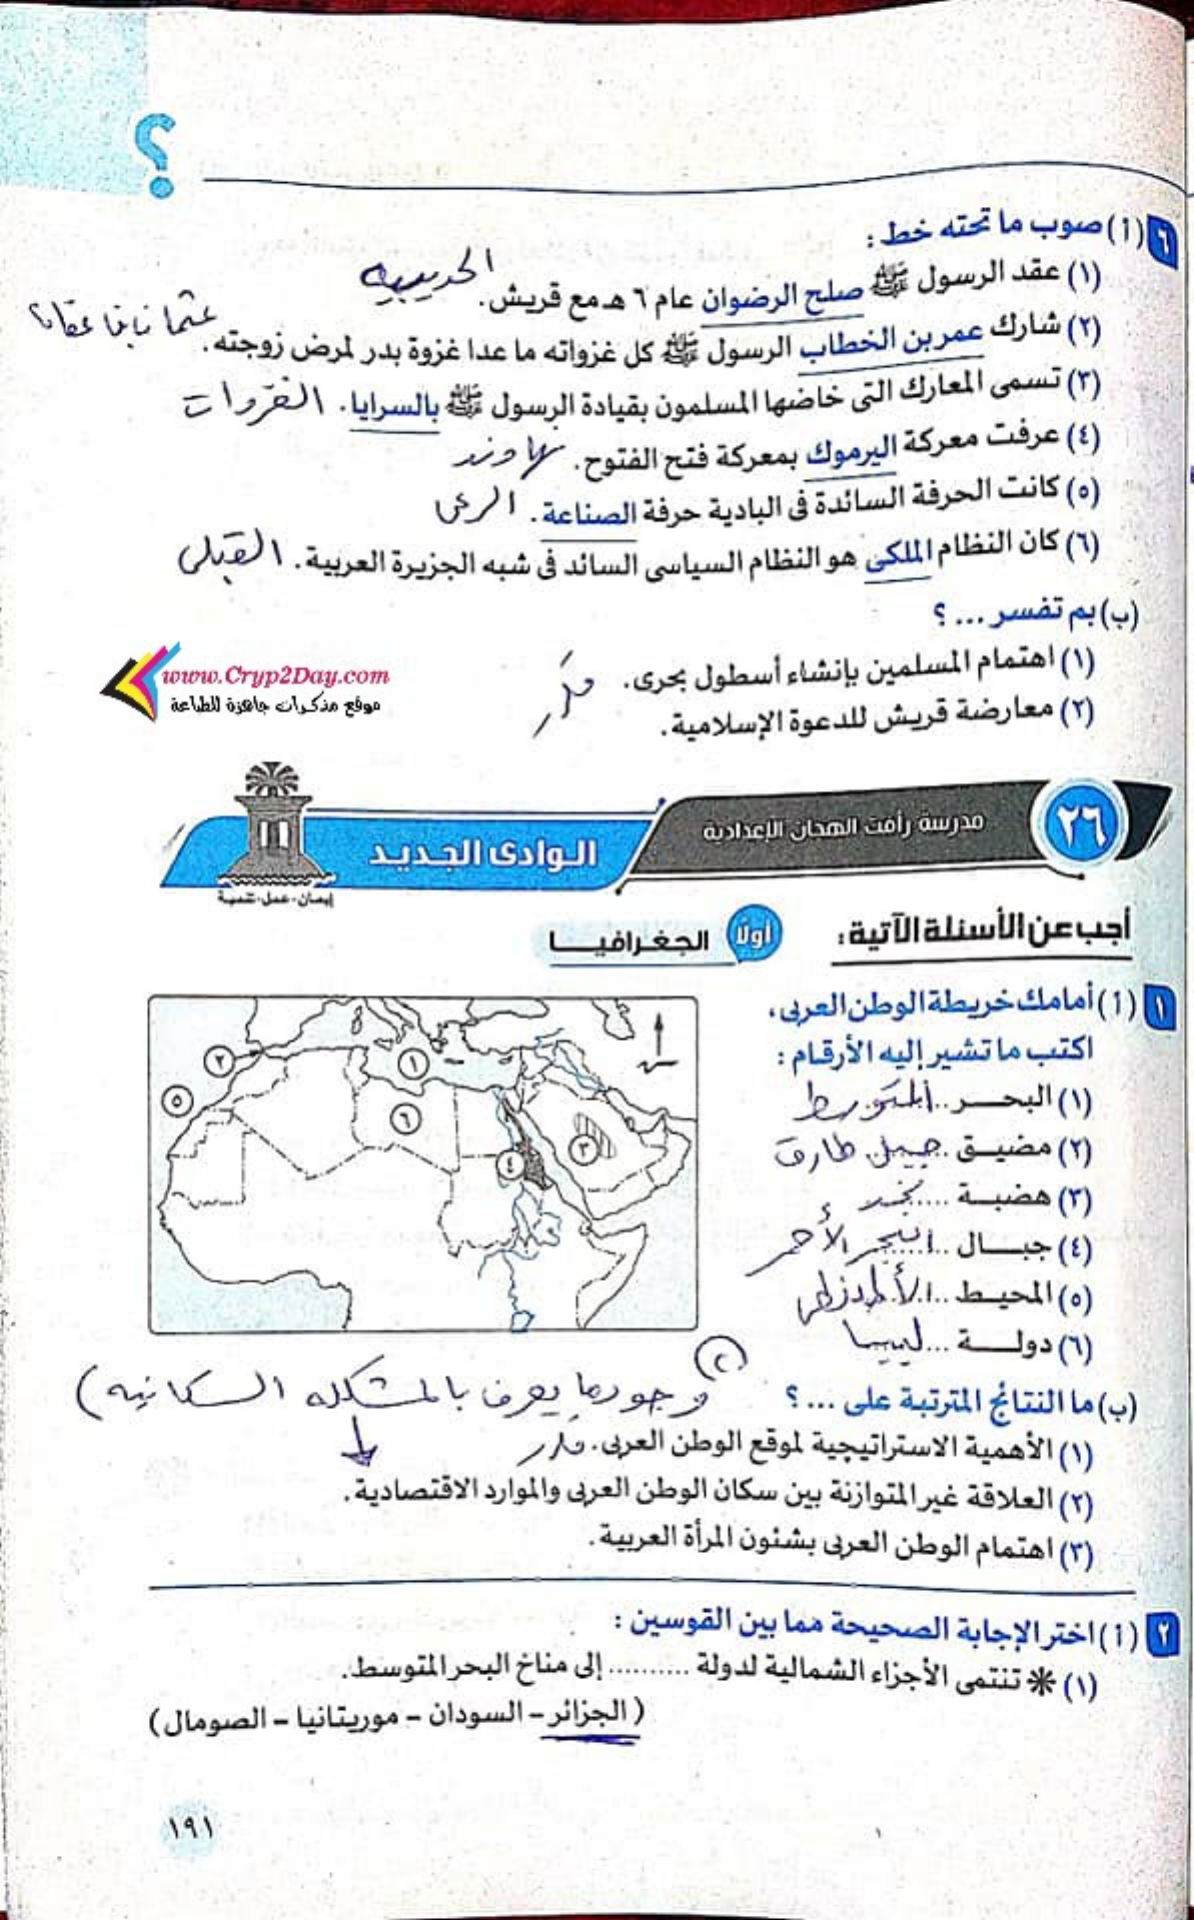 ؟
٦ (أ) صوب ما تحته خط :
(١) عقد الرسول ﷺ صلح الرضوان عام ٦ هـ مع قريش. الحديبيه
(٢) شارك عمر بن الخطاب الرسول ﷺ كل غزواته ما عدا غزوة بدر لمرض زوجته. عثمان بن عفان
(٣) تسمى المعارك التى خاضها المسلمون بقيادة الرسول ﷺ بالسرايا. الغزوات
(٤) عرفت معركة اليرموك بمعركة فتح الفتوح. نهاوند
(٥) كانت الحرفة السائدة فى البادية حرفة الصناعة. الرعى
(٦) كان النظام الملكى هو النظام السياسى السائد فى شبه الجزيرة العربية. القبلى
(ب) بم تفسر ... ؟
(١) اهتمام المسلمين بإنشاء أسطول بحرى.
(٢) معارضة قريش للدعوة الإسلامية.
www.Cryp2Day.com
موقع مذكرات جاهزة للطباعة
٢٦ مدرسة رأفت الهجان الإعدادية
الوادى الجديد
إيمان - عمل - تنمية
أجب عن الأسئلة الآتية :
أولاً الجغرافيا
١ (أ) أمامك خريطة الوطن العربى،
اكتب ما تشير إليه الأرقام :
(١) البحر .. المتوسط
(٢) مضيق . جبل طارق
(٣) هضبة .... نجد
(٤) جبال .. البحر الأحمر
(٥) المحيط .. الأطلنطى
(٦) دولة ... ليبيا
٢
١
٥
٦
٣
٤
(ب) ما النتائج المترتبة على ... ؟
(٢) وجود ما يعرف بالمشكله السكانيه)
(١) الأهمية الاستراتيجية لموقع الوطن العربى.
(٢) العلاقة غير المتوازنة بين سكان الوطن العربى والموارد الاقتصادية.
(٣) اهتمام الوطن العربى بشئون المرأة العربية.
٢ (أ) اختر الإجابة الصحيحة مما بين القوسين :
(١) * تنتمى الأجزاء الشمالية لدولة .......... إلى مناخ البحر المتوسط.
(الجزائر - السودان - موريتانيا - الصومال)
١٩١